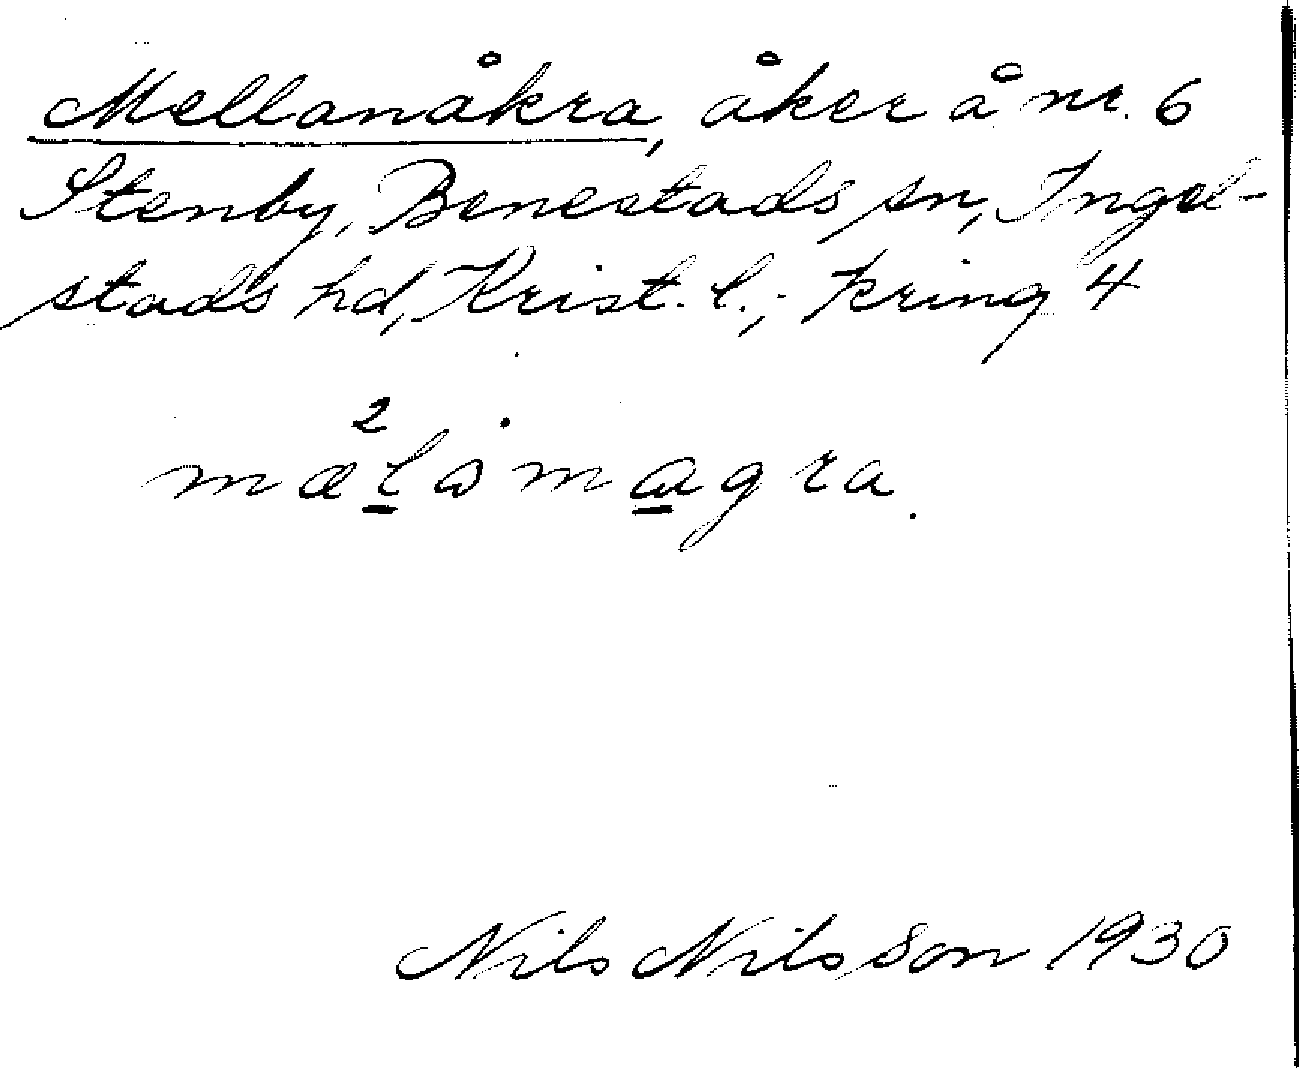 Mellanåkra, åker å nr. 6
Stenby, Benestads sn, Ingel-
stads hd, Krist. l.; kring 4
Nils Nilsson 1930